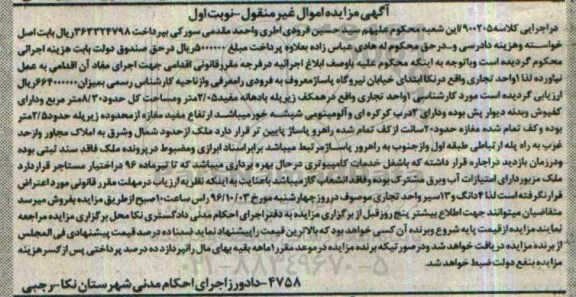 آگهی مزایده اموال غیر منقول - نوبت اول
دراجرایی کلاسه ۷۹۰۰۲۰۵ این شعبه محکوم علیهم سید حسین فرودی اطری واحمد مقدمی سورکی بپرداخت ۳۶۲۳۲۴۷۹۸ ریال بابت اصل
خواسته وهزینه دادرسی و..درحق محکوم له هادی عباس زاده بعلاوه پرداخت مبلغ ۵۰۰۰۰۰۰ ریال درحق صندوق دولت بابت هزینه اجرائی
محکوم گردیده است وباتوجه به اینکه محکوم علیه باوصف ابلاغ اجرائیه درفرجه مقرر قانونی اقدامی جهت اجرای مفاد آن اقدامی به عمل
نیاورده لذا ۱ واحد تجاری واقع درنکا ابتدای خیابان نیروگاه پاساژ معروف به فرودی رامعرفی وازناحیه کارشناس رسمی بمیزان ۶۶۴۰۰۰۰۰۰ ریال
ارزیابی گردیده است مورد کارشناسی ۱ واحد تجاری واقع در همکف زیر پله بادهانه مفید ۲/۰۵ متر ومساحت کل حدود ۸/۳۰ متر مربع ودارای
کفپوش وبدنه دیوار پش بوده ودارای ۲ درب کرکره ای وآلومینیومی شیشه خور میباشد ارتفاع مفید مغازه از محدوده زیر پله حدود ۲/۵ متر
بوده و کف تمام شده مغازه حدود ۲۰ سانت از کف تمام شده راهرو پاساژ پایین تر قرار دارد ملک از حدود شمال وشرق به املاک مجاور وازحد
غرب به راه پله ارتباطی طبقه اول وازجنوب به راهرور پاساژ مرتبط میباشد برابر اسناد ابرازی ومضبوط در پرونده ملک فاقد سند ثبتی بوده
ودر زمان بازدید در اجاره قرار داشته که باشغل خدمات کامپیوتری در حال بهره برداری میباشد که تا تیرماه ۹۶ در اختیار مستاجر قرار دارد
ملک مزبور دارای امتیازات آب وبرق مشترک بوده وفاقد انشعاب گاز میباشد باعنایت به اینکه نظریه ارزیاب در مهلت مقرر قانونی مورد اعتراض
قرار نگرفته است لذا ۴ دانگ و ۱۳ سیر واحد تجاری موصوف در روز چهارشنبه مورخ ۹۶/۱۰/۰۳ راس ساعت ۱۰ صبح از طریق مزایده بفروش میرسد
متقاضیان میتوانند جهت اطلاع بیشتر پنج روز قبل از برگزاری مزایده به دفتر اجرای احکام مدنی دادگستری نکا محل برگزاری مزایده مراجعه
نمایند مزایده از قیمت پایه شروع وبرنده آن کسی خواهد بود که بالاترین قیمت را پیشنهاد نماید ضمنا ده درصد قیمت پیشنهادی فی المجلس
از برنده مزایده دریافت خواهد شد ودر صورتیکه برنده مزایده در موعد مقرر ۱ ماهه بقیه بهای مال را نپردازد ده درصد پرداختی پس از کسر هزینه
مزایده بنفع دولت ضبط خواهد شد.
۴۷۵۸- دادورز اجرای احکام مدنی شهرستان نکا - رجبی
۰۲۱-۸۸۳۴۹۶۷۰-۵